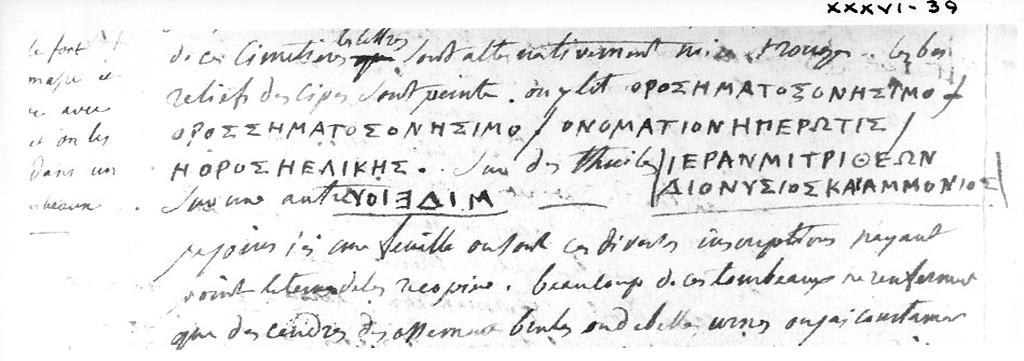 XXXVI-39
le fort
de ces cimetieres les lettres sont alternativement noires rouges. les bas
reliefs des cipes sont peints. on y lit ΟΡΟΣΗΜΑΤΟΣΟΝΗΣΙΜΟ
ΟΡΟΣΣΗΜΑΤΟΣΟΝΗΣΙΜΟ / ΟΝΟΜΑΤΙΟΝΗΠΕΡΩΤΙΣ /
ΗΟΡΟΣΗΕΛΙΚΗΣ. Sur des thuiles ΙΕΡΑΝΜΙΤΡΙΘΕΩΝ
ΔΙΟΝΥΣΙΟΣΚΑΙΑΜΜΟΝΙΟΣ
et on les
dans un
Sur une autre ΥΟΙΞΔΙΜ
je joins ici une feuille ou sont ces divers inscriptions n'ayant
point le tems de les recopier. beaucoup de ces tombeaux ne renferment
que des cendres des ossements brulés ou de belles urnes ou j'ai